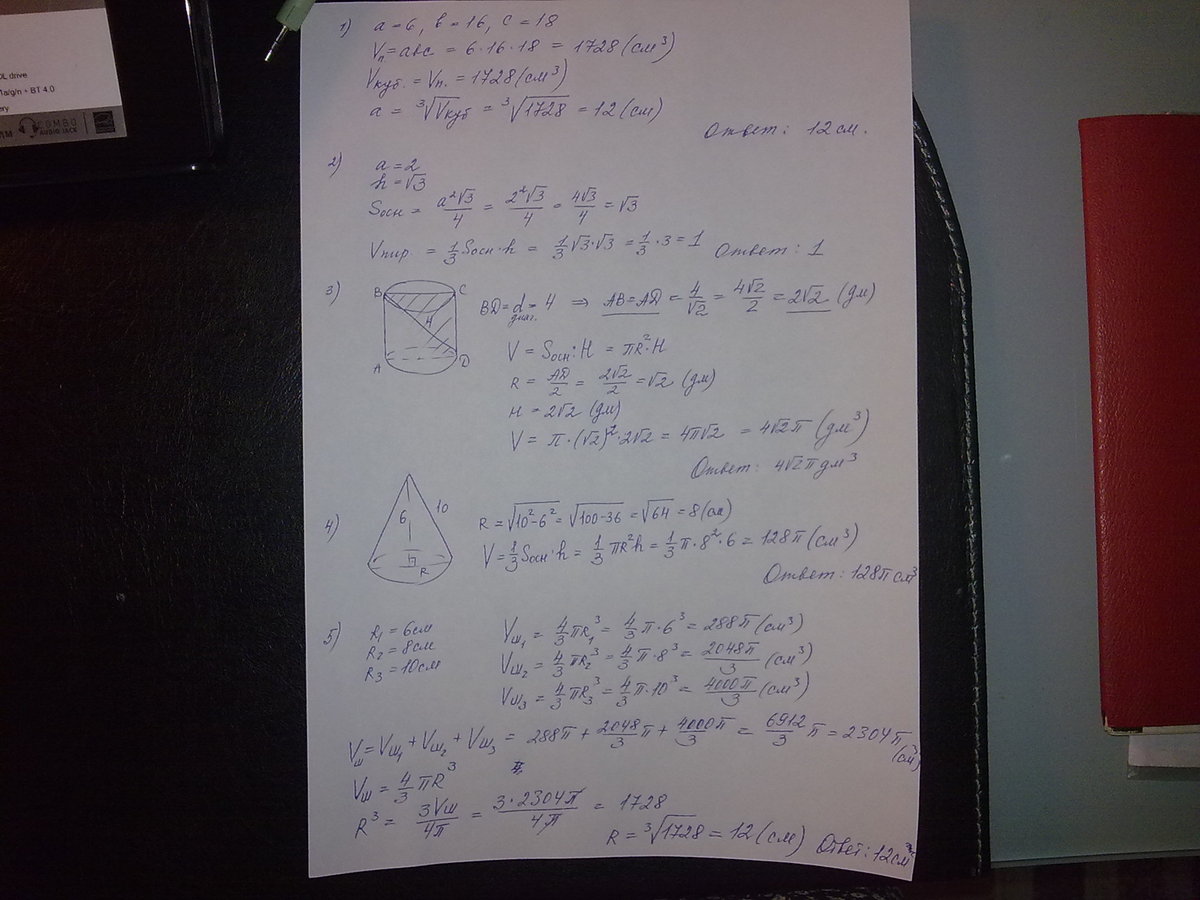 DL drive
1a/g/n + BT 4.0
ery
COMBO
AUDIO JACK
1) a = 6, b = 16, c = 18
Vп = abc = 6·16·18 = 1728 (см³)
Vкуб. = Vп. = 1728 (см³)
a = ³√Vкуб = ³√1728 = 12 (см)
Ответ: 12 см.
2) a = 2
h = √3
Sосн = a²√3/4 = 2²√3/4 = 4√3/4 = √3
Vпир. = 1/3 Sосн·h = 1/3 √3·√3 = 1/3·3 = 1 Ответ: 1
3) B C A D 4
BD = d диаг. = 4 ⇒ AB = AD = 4/√2 = 4√2/2 = 2√2 (дм)
V = Sосн·H = πR²·H
R = AD/2 = 2√2/2 = √2 (дм)
H = 2√2 (дм)
V = π·(√2)²·2√2 = 4π√2 = 4√2π (дм³)
Ответ: 4√2π дм³
4) 6 10 R
R = √10²-6² = √100-36 = √64 = 8 (см)
V = 1/3 Sосн·h = 1/3 πR²h = 1/3 π·8²·6 = 128π (см³)
Ответ: 128π см³
5) R₁ = 6см
R₂ = 8см
R₃ = 10см
Vш₁ = 4/3 πR₁³ = 4/3 π·6³ = 288π (см³)
Vш₂ = 4/3 πR₂³ = 4/3 π·8³ = 2048π/3 (см³)
Vш₃ = 4/3 πR₃³ = 4/3 π·10³ = 4000π/3 (см³)
Vш = Vш₁ + Vш₂ + Vш₃ = 288π + 2048/3 π + 4000/3 π = 6912/3 π = 2304π (см³)
Vш = 4/3 πR³
R³ = 3Vш/4π = 3·2304π/4π = 1728
R = ³√1728 = 12 (см) Ответ: 12см